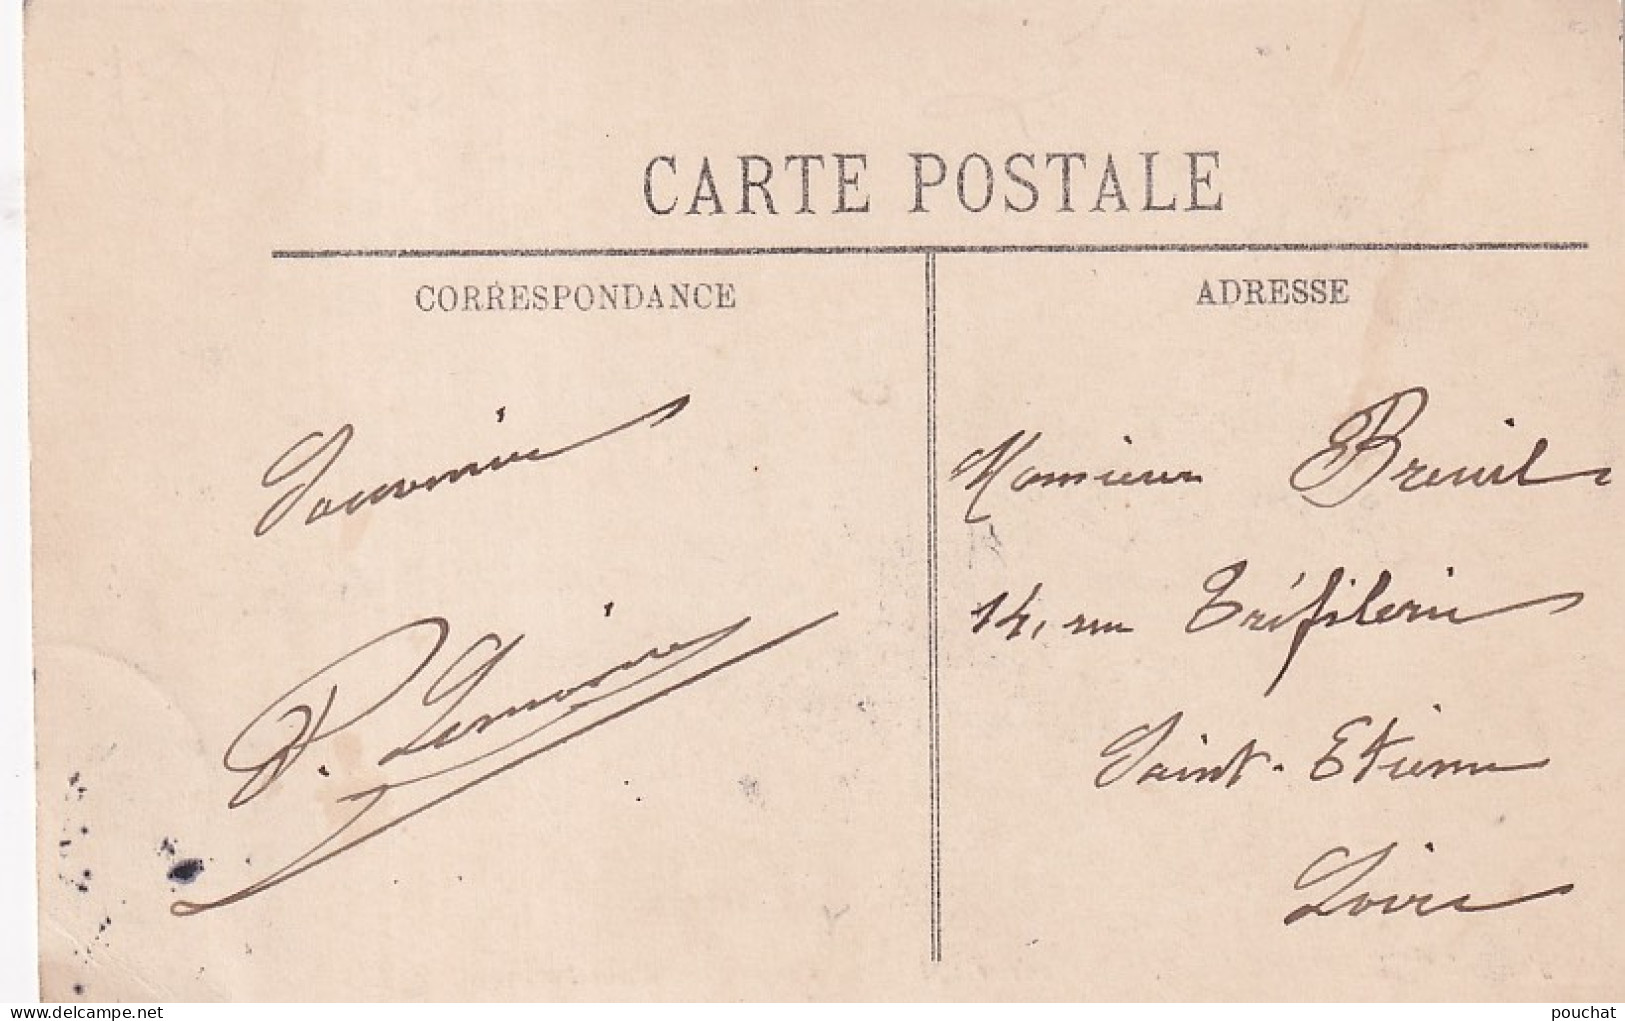 CARTE POSTALE
CORRESPONDANCE
ADRESSE
Souvenir
P. Lemoine
Monsieur Breuil
14, rue Tréfilerie
Saint-Etienne
Loire
www.delcampe.net
pouchat